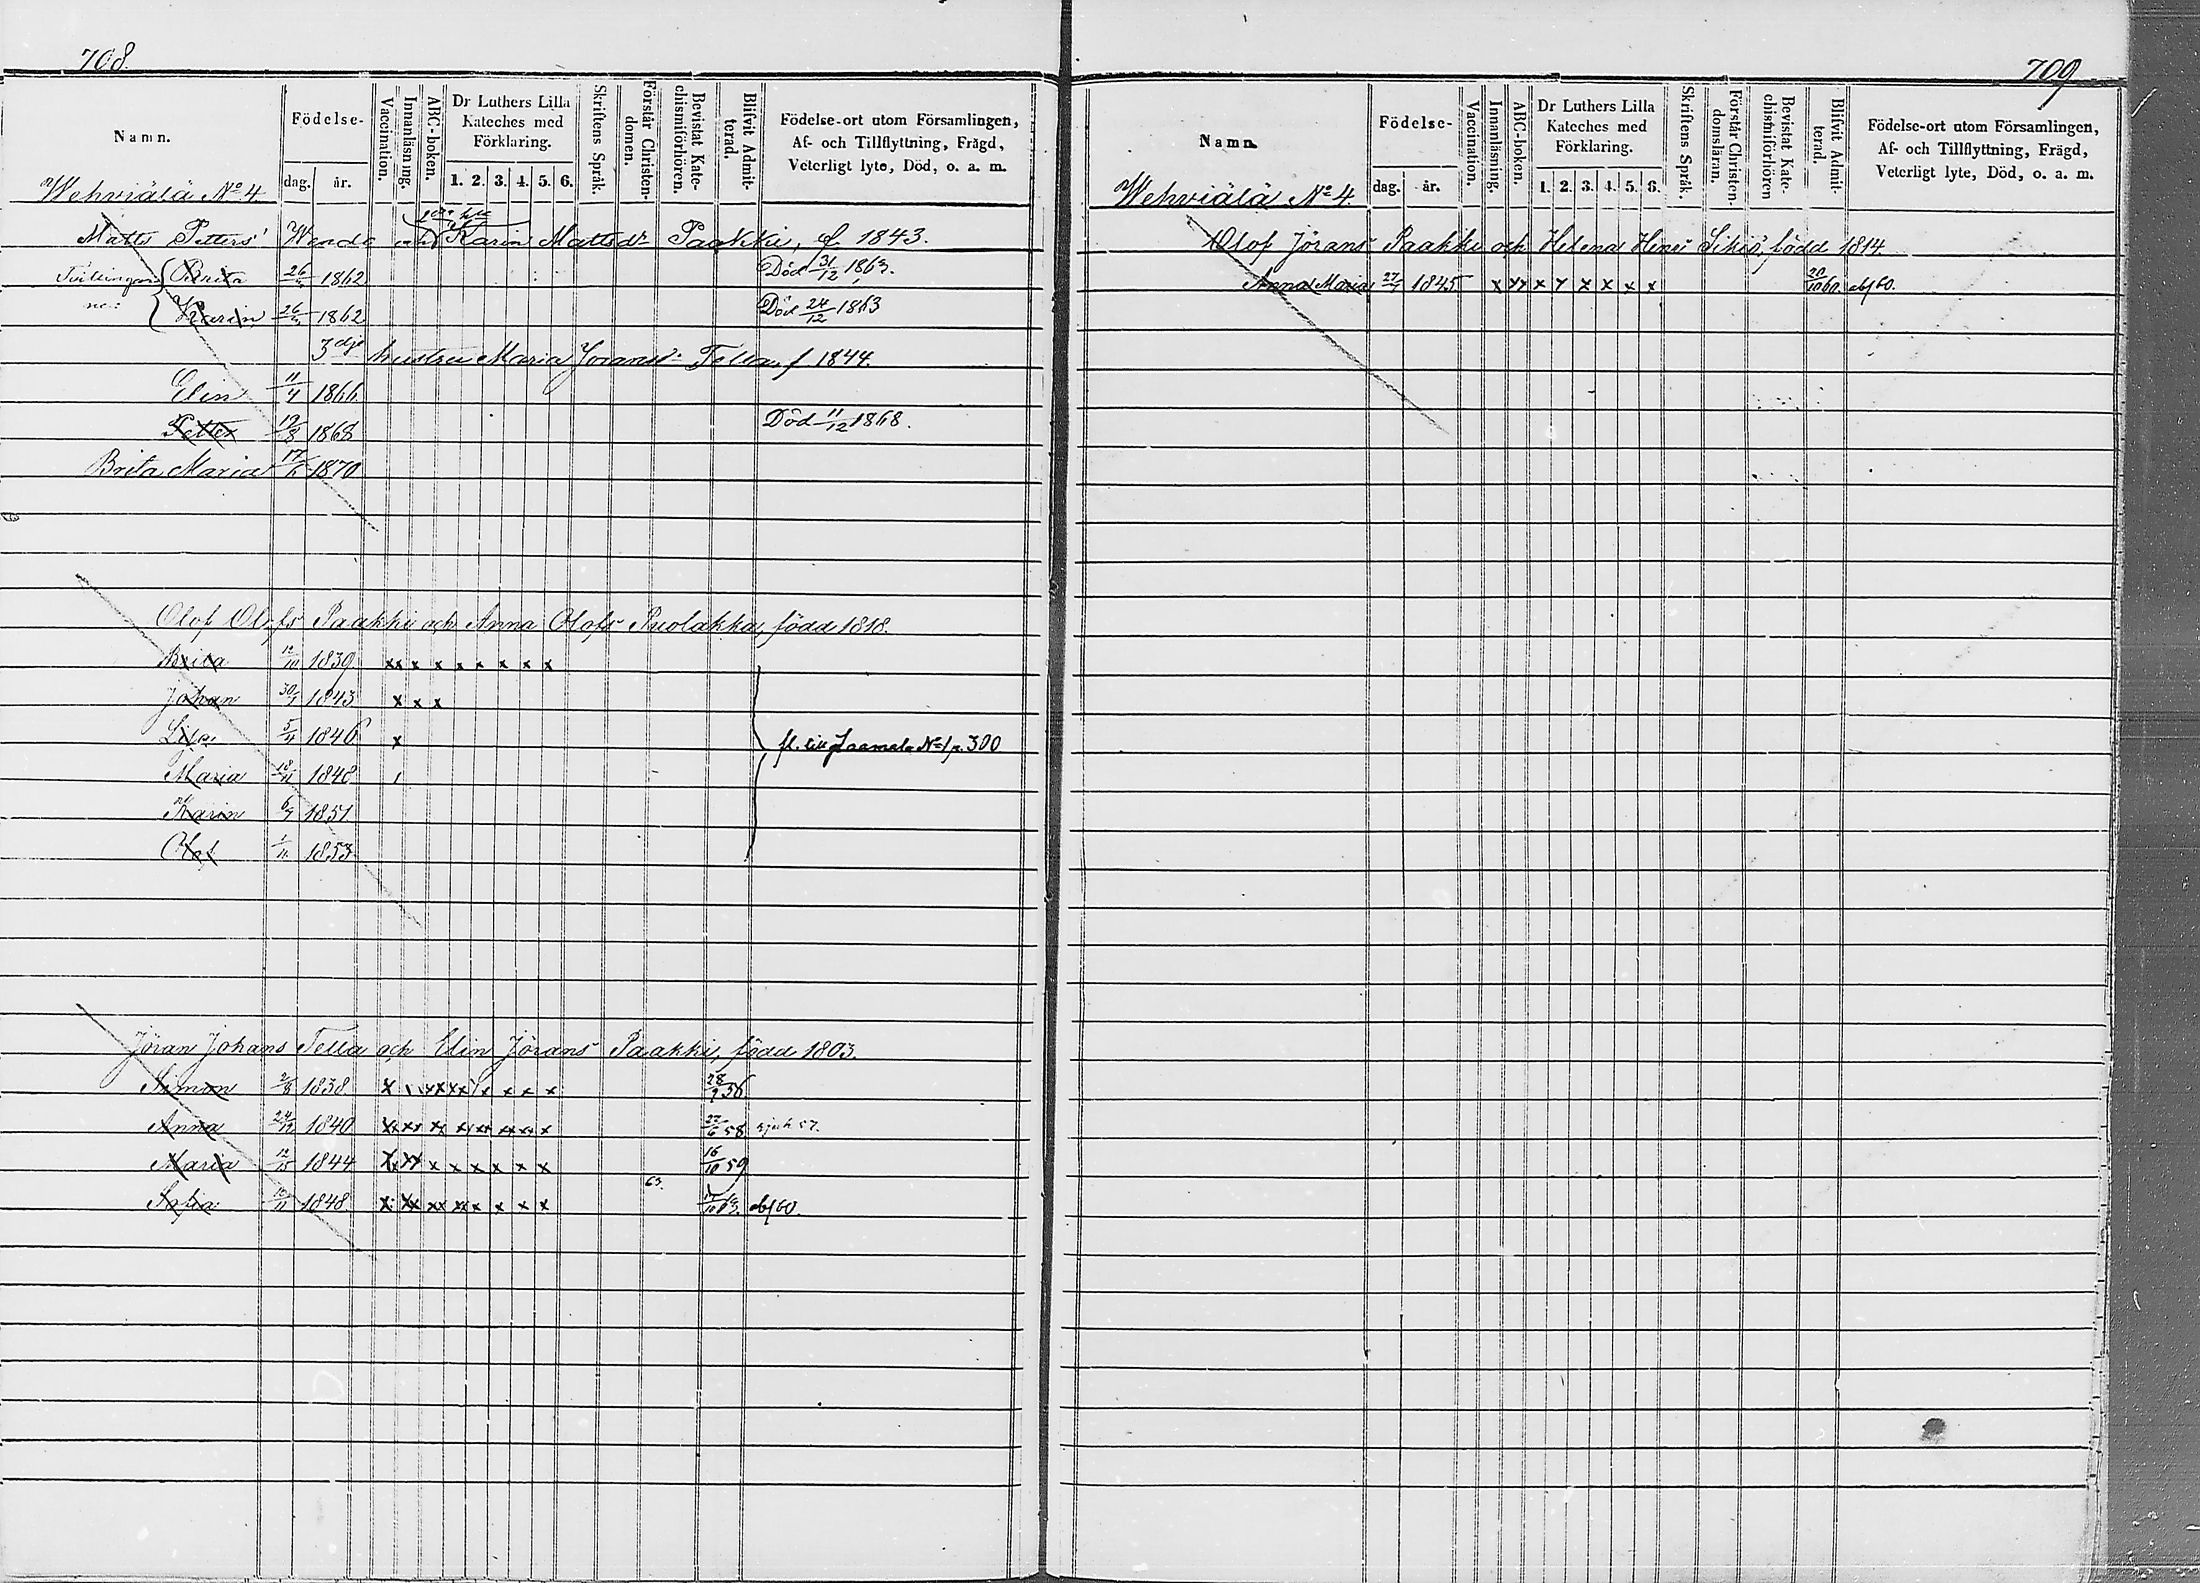 708.
Namn. Födelse- dag. år. Vaccination. Innanläsning. ABC-boken. Dr Luthers Lilla Kateches med Förklaring. 1. 2. 3. 4. 5. 6. Skriftens Språk. Förstår Christendomen. Bevistat Katechismiförhören. Blifvit Admitterad. Födelse-ort utom Församlingen, Af- och Tillflyttning, Frägd, Veterligt lyte, Död, o. a. m.
Wehviälä No 4.
Matts Petters' och Karin Mattsdr Paakki, f. 1843.
Brita 26 1862 Död 31/12 1863.
Karin 26 1862 Död 24/12 1863
3dje hustru Maria Joransd. Tella, f. 1844.
Elin 11/4 1866
Petter 19/8 1868 Död 11/12 1868.
Brita Maria 17/6 1870
Olof Olofs Paakki och Anna Olofs Puolakka, född 1818.
Brita 1839 xx x x x x x x x
Johan 30 1843 x x x
Lisa 5 1846 x fl. till No 1 p. 300
Maria 18/11 1848
Karin 6 1851
Olof 1/11 1853
Jöran Johans Tella och Elin Jörans Paakki, född 1803.
Simon 2/8 1838 28/9 56
Anna 24/12 1840 27/6 58 sjuk 57.
Maria 12 1844 16/10 59
Sofia 1848 63. abs 60.
709
Namn. Födelse- dag. år. Vaccination. Innanläsning. ABC-boken. Dr Luthers Lilla Kateches med Förklaring. 1. 2. 3. 4. 5. 6. Skriftens Språk. Förstår Christendomsläran. Bevistat Katechismiförhören Blifvit Admitterad. Födelse-ort utom Församlingen, Af- och Tillflyttning, Frägd, Veterligt lyte, Död, o. a. m.
Wehviälä No 4.
Olof Jörans Paakki och Helena Henr Sikiö, född 1814.
Anna Maria 27 1845 20/10 60. abs 60.